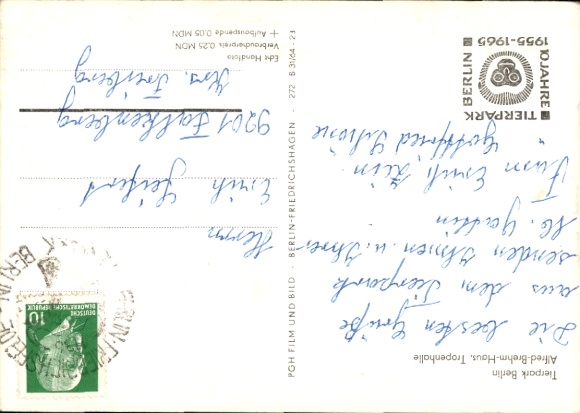 Tierpark Berlin
Alfred-Brehm-Haus, Tropenhalle
Die besten Grüße
aus dem Tierpark
senden Ihnen u. Ihrer
Gattin
Fam. Erich
Gottfried
10 JAHRE
TIERPARK
BERLIN
1955-1965
PGH FILM UND BILD · BERLIN-FRIEDRICHSHAGEN · 272 B 31/64 - 23
DEUTSCHE
DEMOKRATISCHE REPUBLIK
10
BERLIN
Herrn
Erich Seifert
9201 Falkenberg
Krs. Freiberg
Echt Handfoto
Verbraucherpreis 0,25 MDN
+ Aufbauspende 0,05 MDN